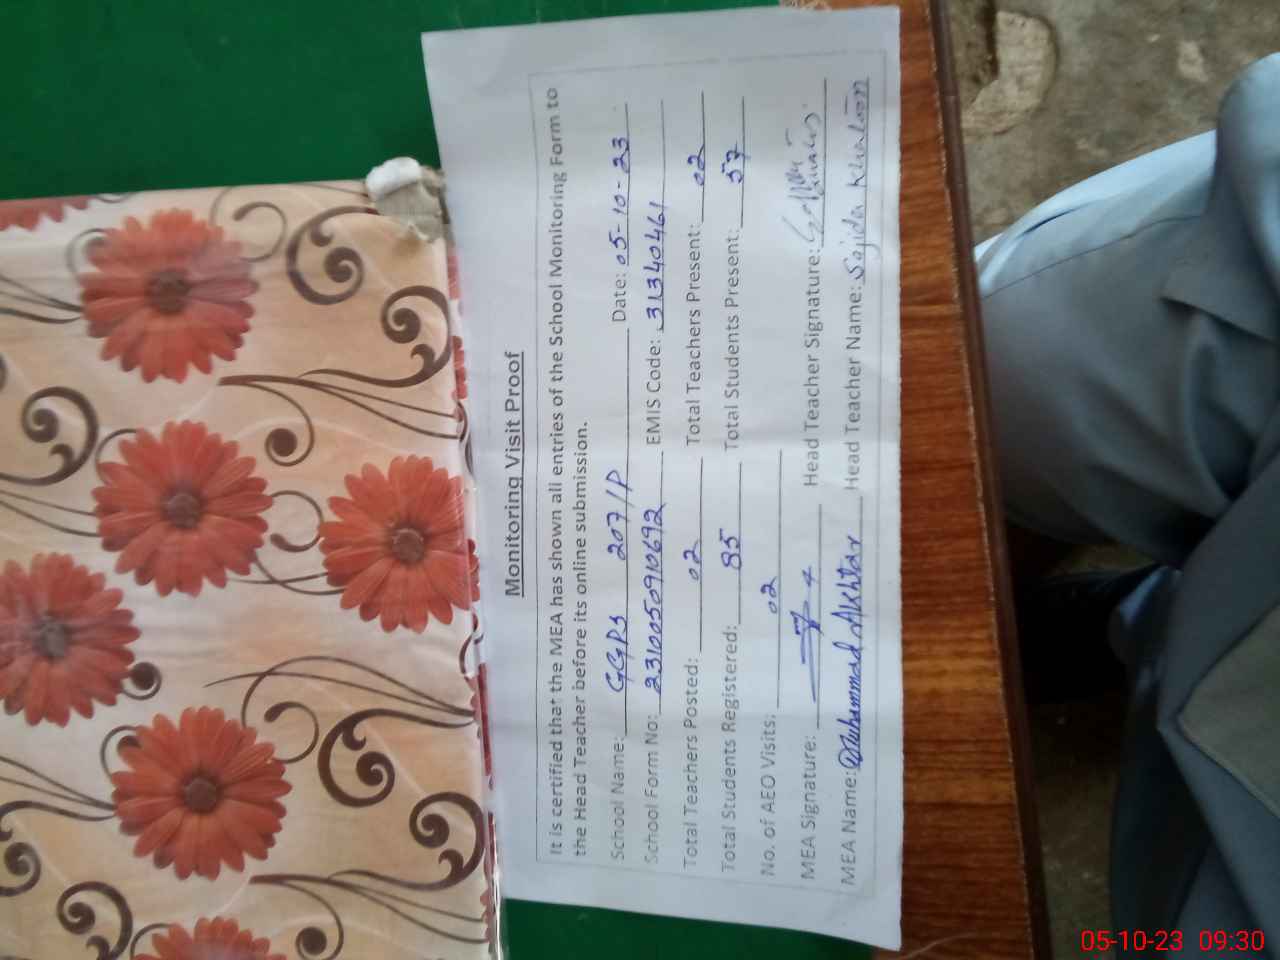 Monitoring Visit Proof
It is certified that the MEA has shown all entries of the School Monitoring Form to
the Head Teacher before its online submission.
School Name: GGPS 207/P Date: 05-10-23
School Form No: 2310050910692 EMIS Code: 31340461
Total Teachers Posted: 02 Total Teachers Present: 02
Total Students Registered: 85 Total Students Present: 57
No. of AEO Visits: 02
MEA Signature: Head Teacher Signature:
MEA Name: Muhammad Akhtar Head Teacher Name: Sajida Khatoon
05-10-23 09:30